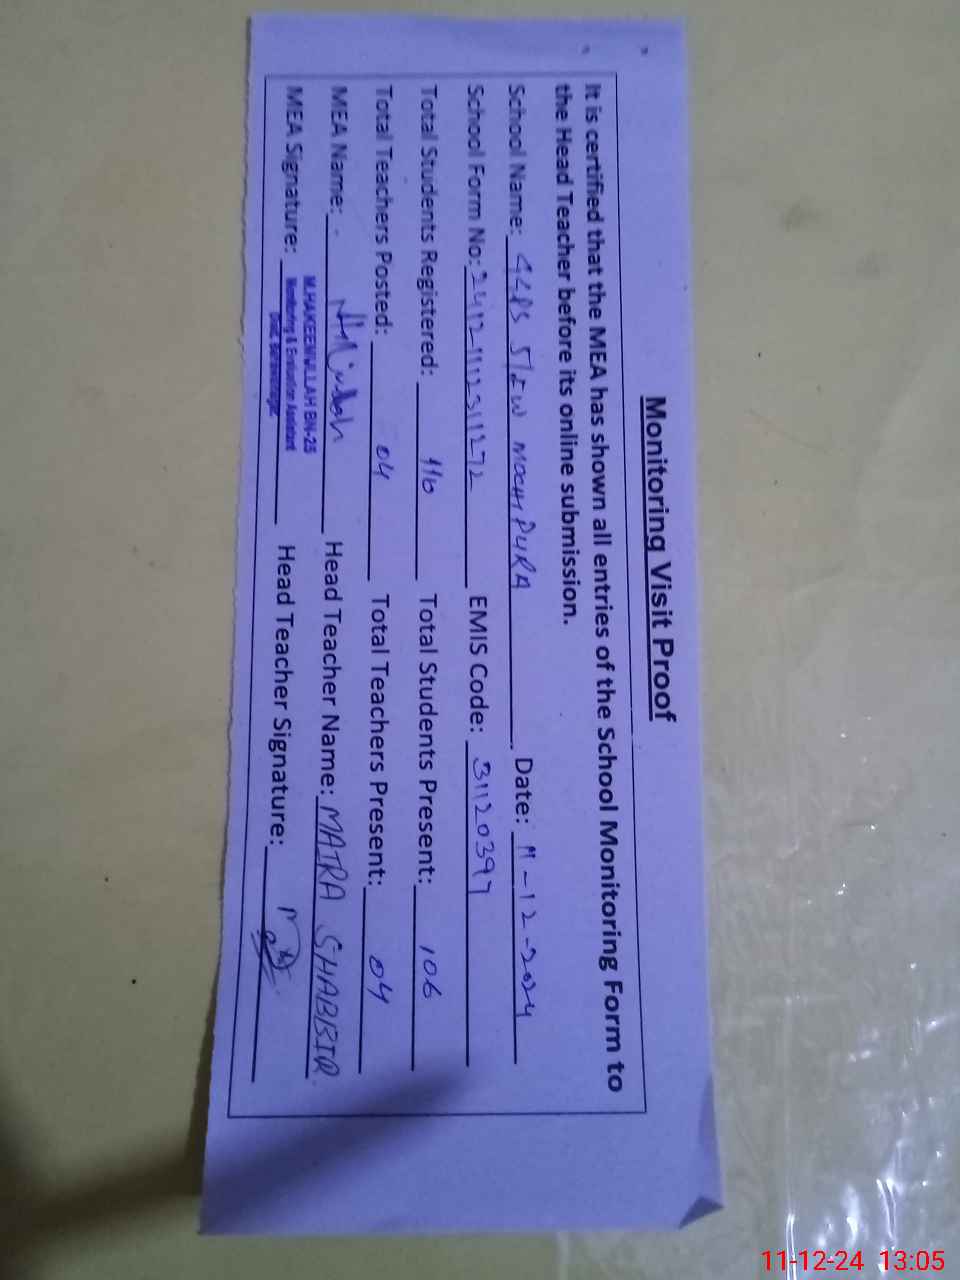 Monitoring Visit Proof
It is certified that the MEA has shown all entries of the School Monitoring Form to
the Head Teacher before its online submission.
School Name: GGPS 5/EW MOCHI PURA Date: 11-12-2024
School Form No: 24121112311272 EMIS Code: 31120397
Total Students Registered: 110 Total Students Present: 106
Total Teachers Posted: 04 Total Teachers Present: 04
MEA Name: Head Teacher Name: MAIRA SHABBIR
MEA Signature: Head Teacher Signature:
M.HAKEEMULLAH BN-25
Monitoring & Evaluation Assistant
Distt. Bahawalnagar
11-12-24 13:05